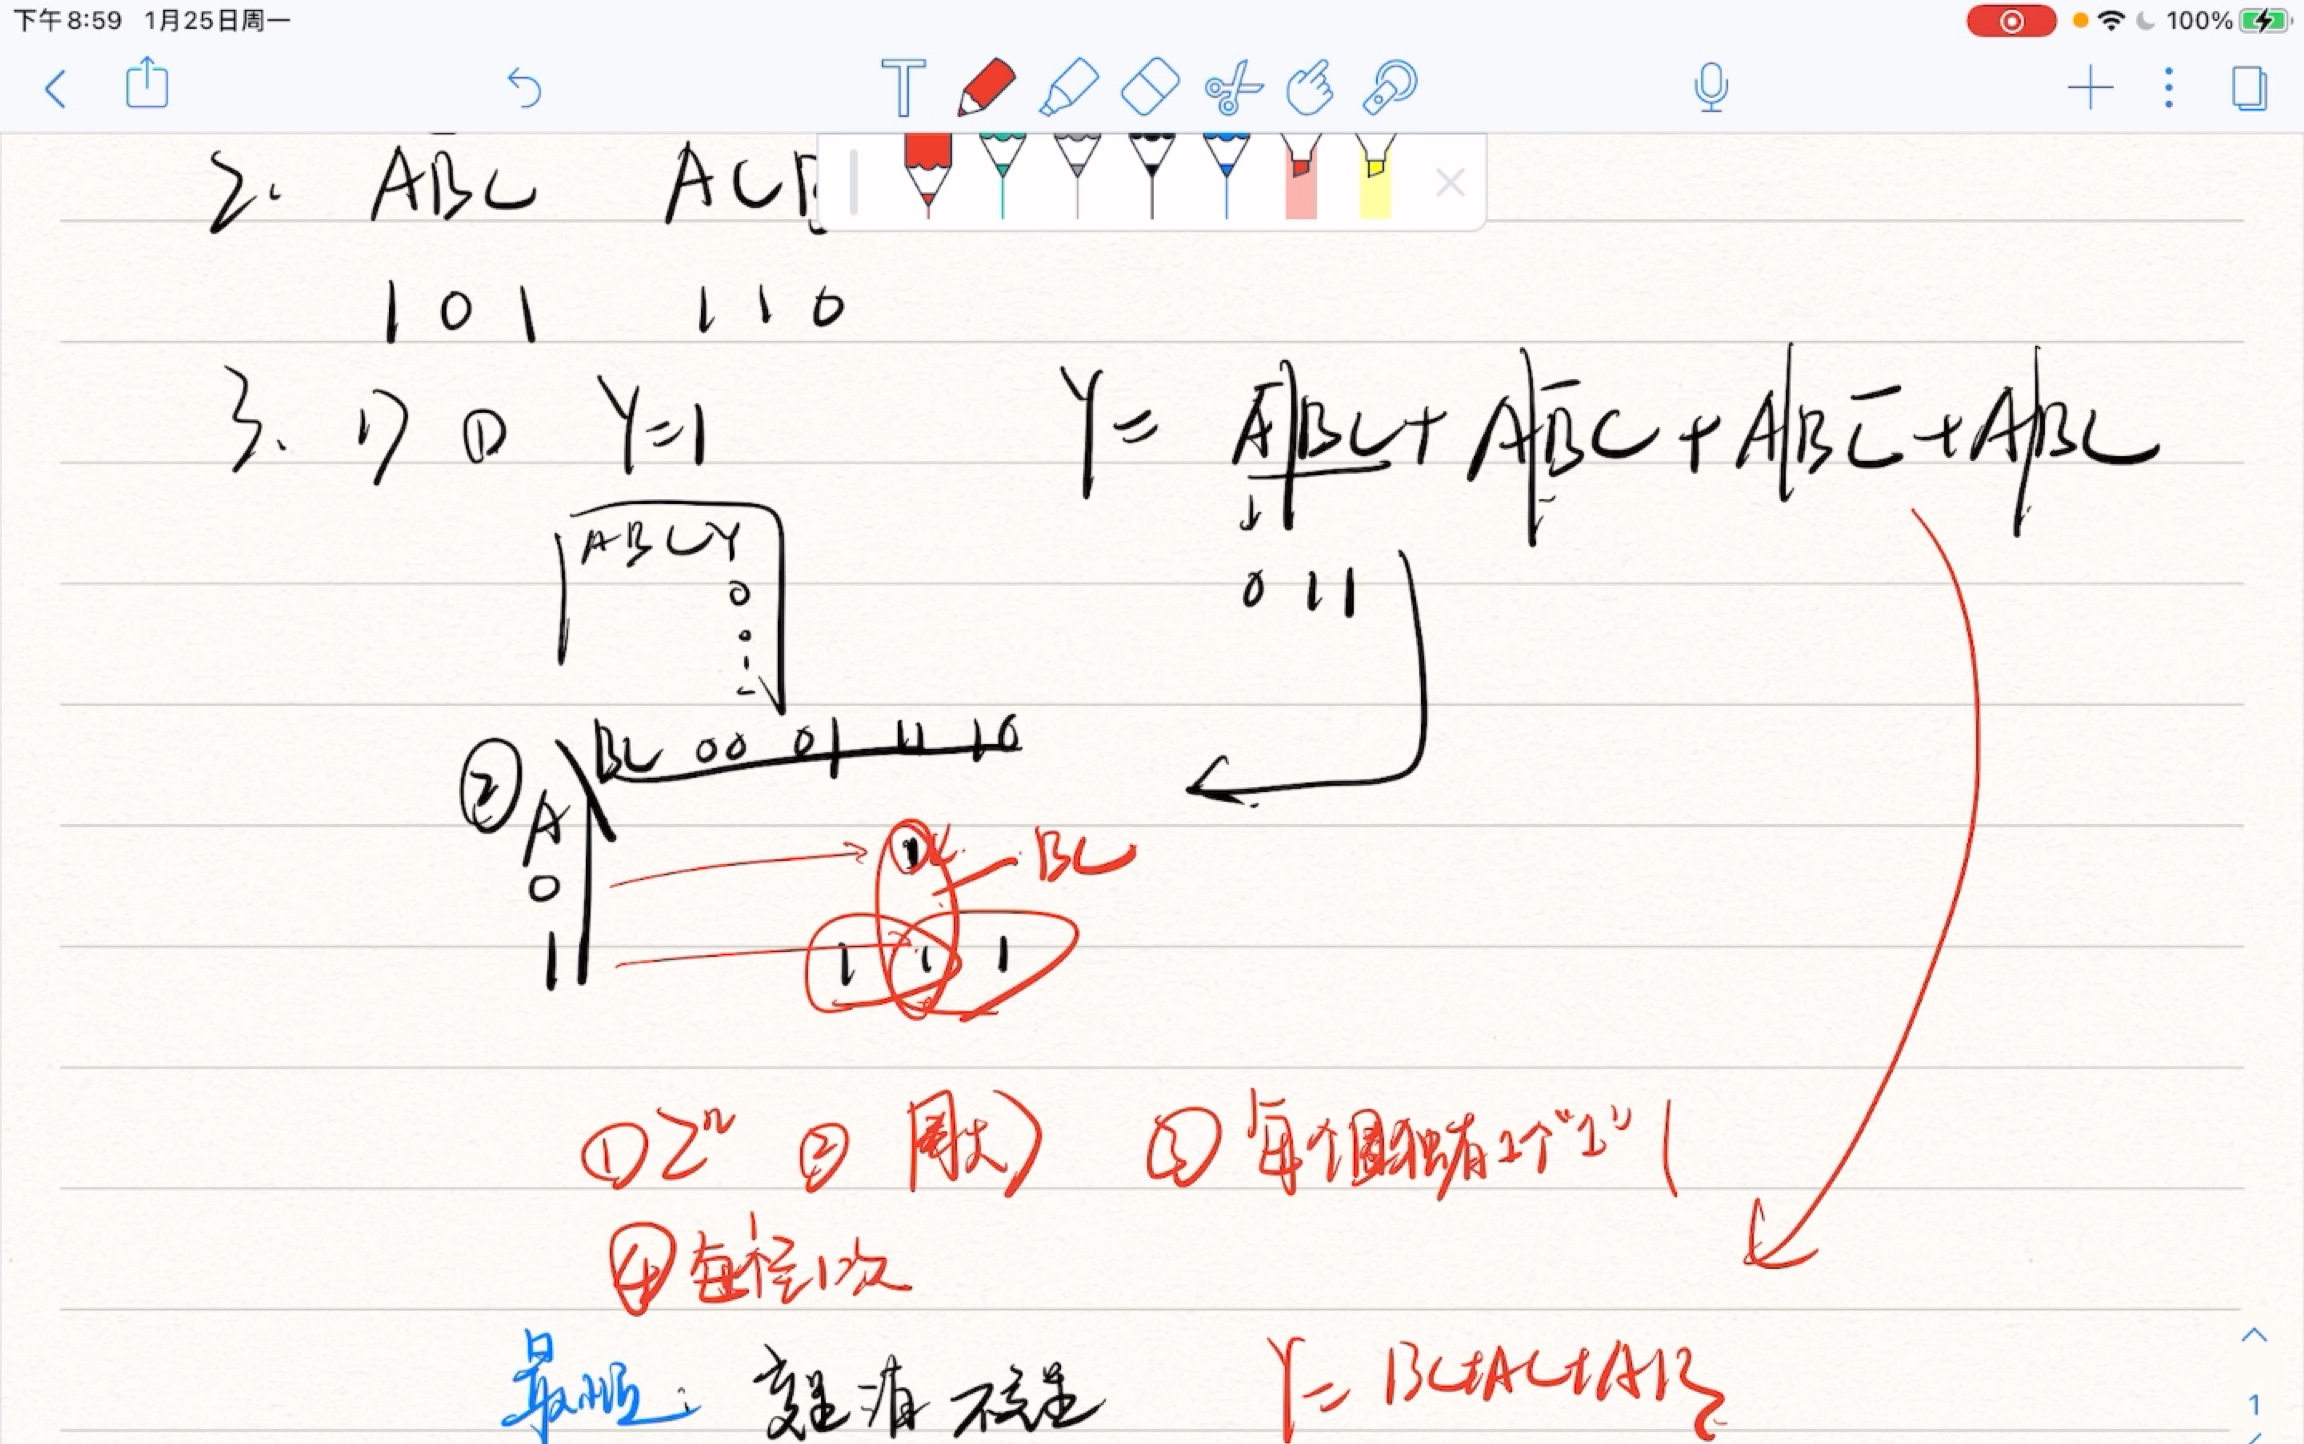 下午8:59 1月25日周一 100%
T
2. ABC AC
101 110
3. 1) ① Y=1 Y= A̅BC+AB̅C+ABC̅+ABC
ABCY
0
0
011
BC 00 01 11 10
② A
0 1 BC
1 1 1 1
①2ⁿ ② 圈大 ③ 每个圈独有1个"1"
④ 每 1次
最小项: 变量 有 不变量 Y=BC+AC+AB
1